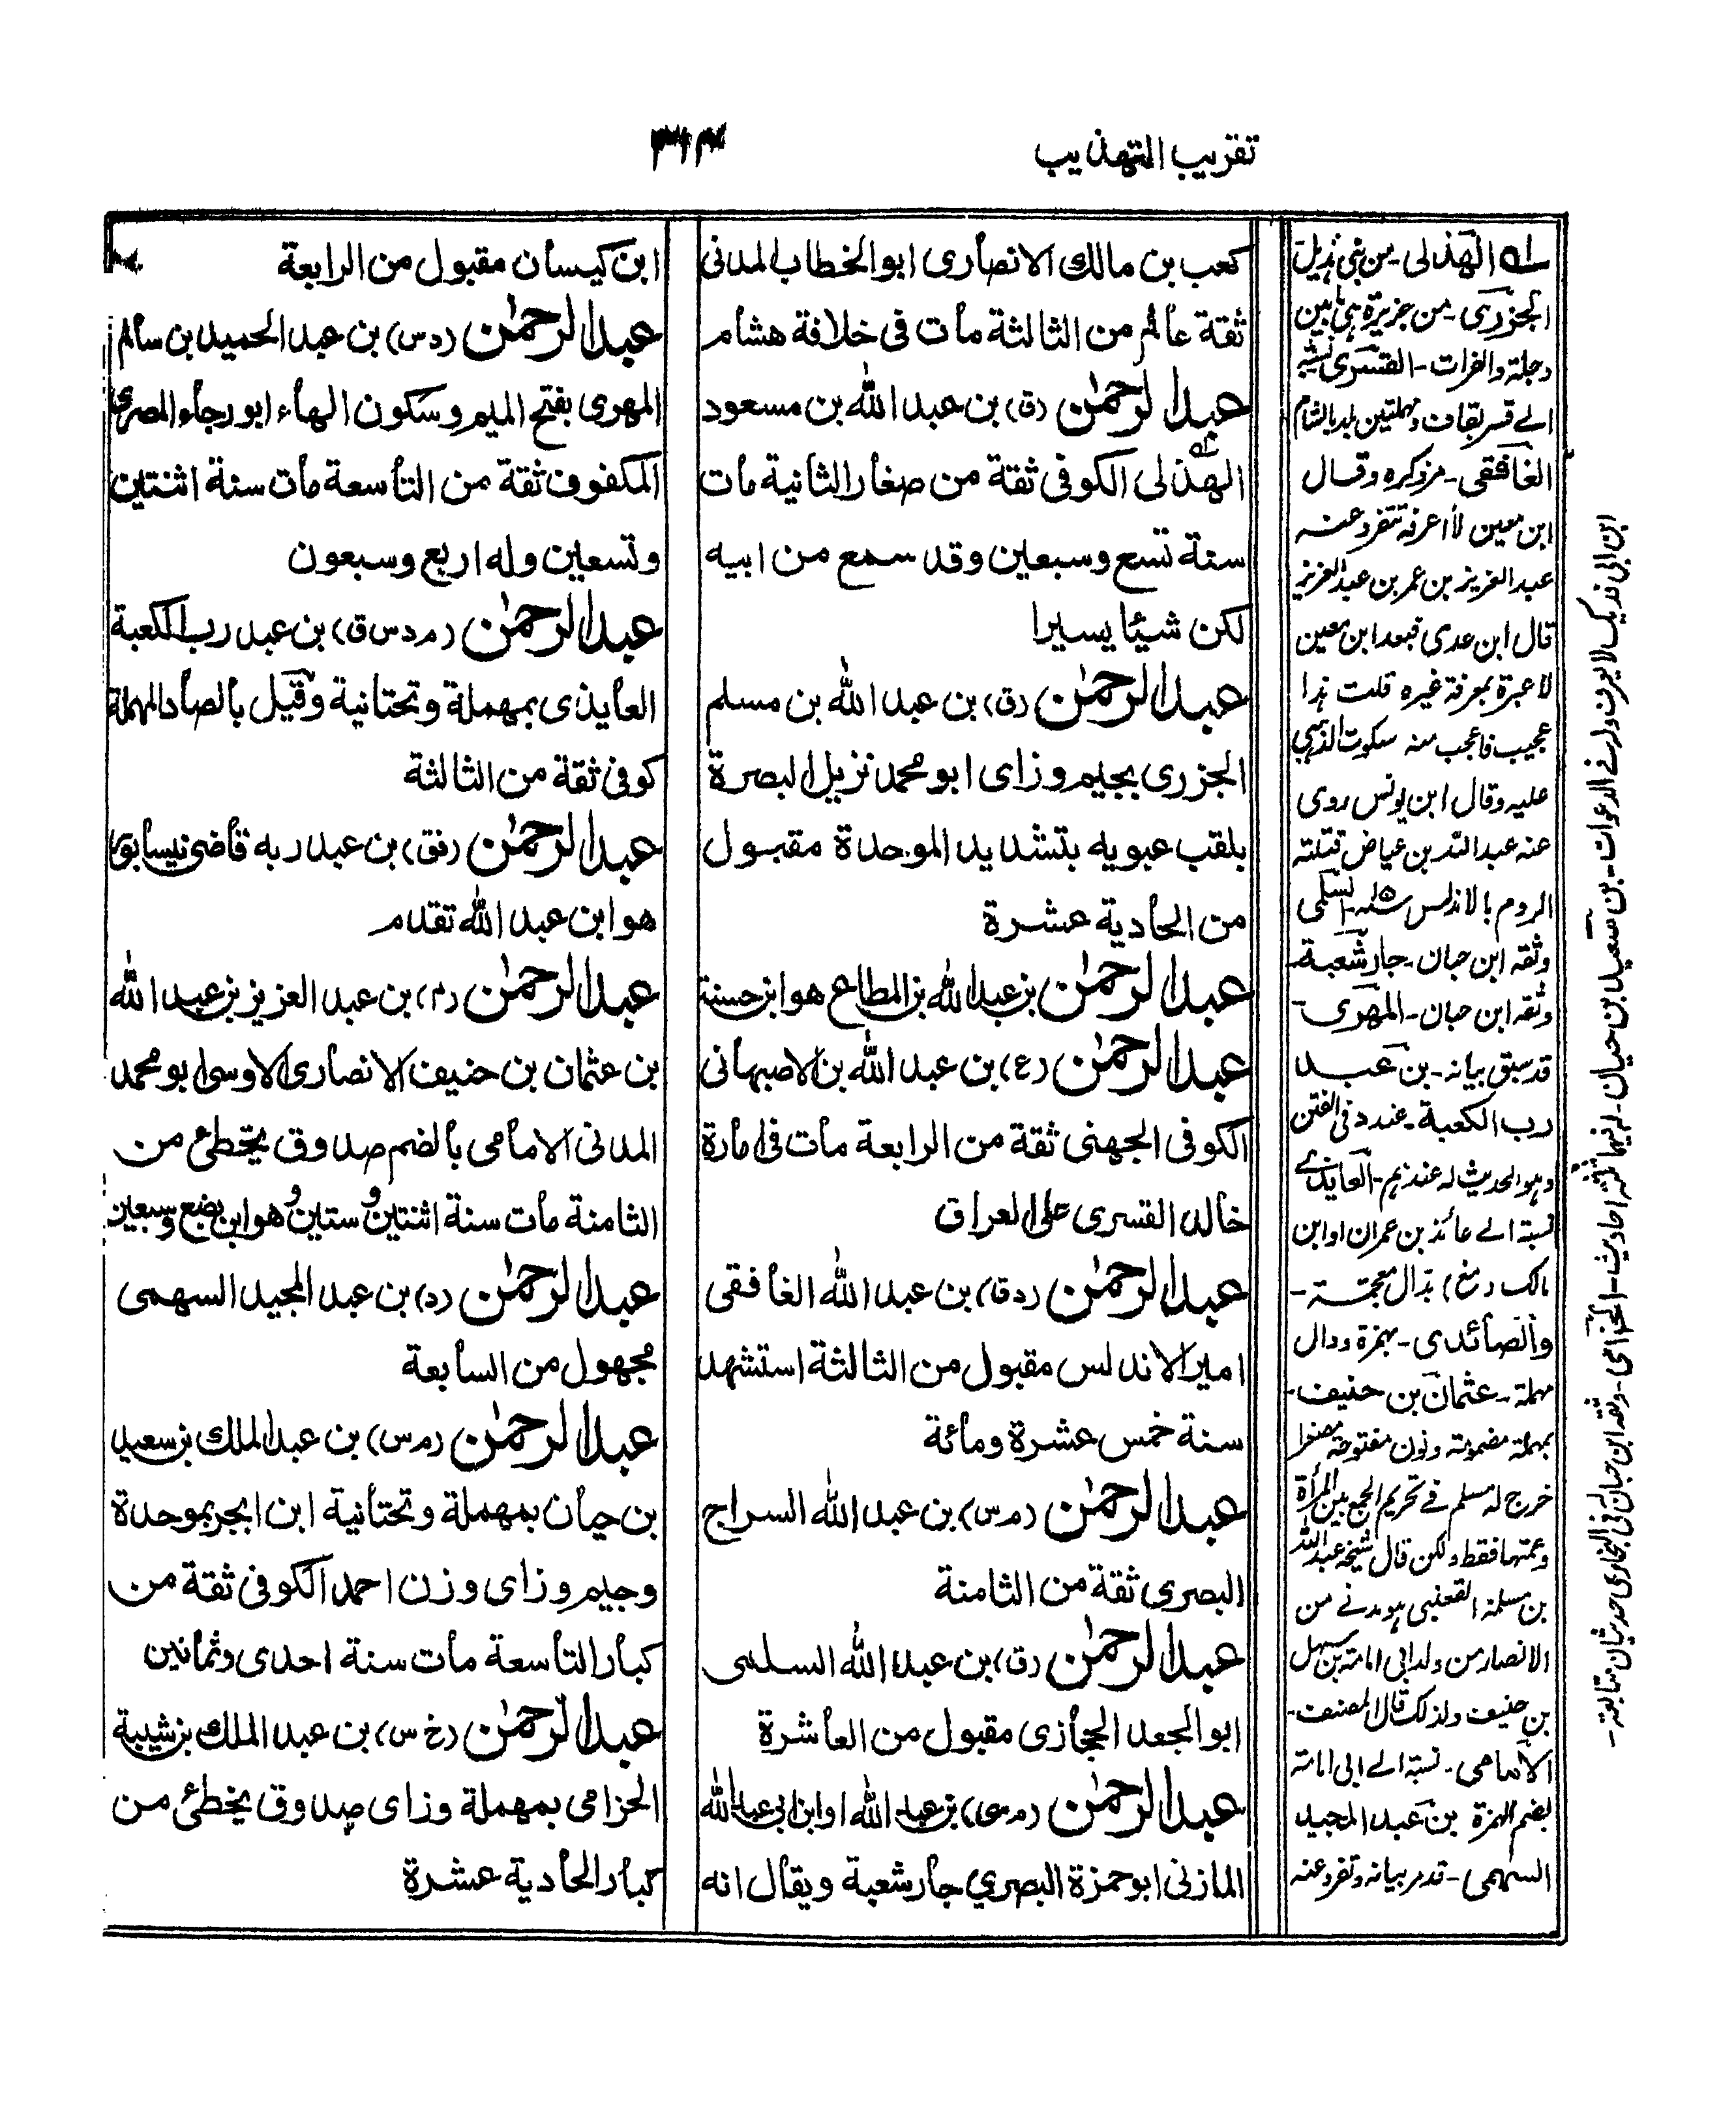 تقريب التهذيب
٣١٣
كعب بن مالك الانصارى ابو الخطاب المدنى
ثقة عالم من الثالثة مات فى خلافة هشام
عبد الرحمٰن (ق) بن عبد الله بن مسعود
الهذلى الكوفى ثقة من صغار الثانية مات
سنة تسع وسبعين وقد سمع من ابيه
لكن شيئا يسيرا
عبد الرحمٰن (ق) بن عبد الله بن مسلم
الجزرى بجيم وزاى ابو محمد نزيل البصرة
بلقب عبويه بتشديد الموحدة مقبول
من الحادية عشرة
عبد الرحمٰن بن عبد الله بن المطاع هو ابن حسنة
عبد الرحمٰن (ع) بن عبد الله بن الاصبهانى
الكوفى الجهنى ثقة من الرابعة مات فى امارة
خالد القسرى على العراق
عبد الرحمٰن (دق) بن عبد الله الغافقى
امير الاندلس مقبول من الثالثة استشهد
سنة خمس عشرة ومائة
عبد الرحمٰن (م س) بن عبد الله السراج
البصرى ثقة من الثامنة
عبد الرحمٰن (ق) بن عبد الله السلمى
ابو الجعد الحجازى مقبول من العاشرة
عبد الرحمٰن بن عبد الله او ابن ابى عبد الله
المازنى ابو حمزة البصرى جار شعبة ويقال انه
ابن كيسان مقبول من الرابعة
عبد الرحمٰن (د س) بن عبد الحميد بن سالم
المهرى بفتح الميم وسكون الهاء ابو رجاء المصرى
المكفوف ثقة من التاسعة مات سنة اثنتين
وتسعين وله اربع وسبعون
عبد الرحمٰن (م د س ق) بن عبد رب الكعبة
العايذى بمهملة وتحتانية وقيل بالصاد المهملة
كوفى ثقة من الثالثة
عبد الرحمٰن (فق) بن عبد ربه قاضى نيسابور
هو ابن عبد الله تقدم
عبد الرحمٰن (م) بن عبد العزيز بن عبد الله
بن عثمان بن حنيف الانصارى الاوسى ابو محمد
المدنى الامامى بالضم صدوق يخطئ من
الثامنة مات سنة اثنتين وستين وهو ابن بضع وسبعين
عبد الرحمٰن (د) بن عبد المجيد السهمى
مجهول من السابعة
عبد الرحمٰن (م س) بن عبد الملك بن سعيد
بن حيان بمهملة وتحتانية ابن ابجر بموحدة
وجيم وزاى وزن احمد الكوفى ثقة من
كبار التاسعة مات سنة احدى وثمانين
عبد الرحمٰن (خ س) بن عبد الملك بن شيبة
الحزامى بمهملة وزاى صدوق يخطئ من
كبار الحادية عشرة
لـه الهذلى - من بنى هذيل
الجزرى - من جزيرة هى بين
دجلة والفرات - القسرى نسبة
الے قسر بقاف ومهملتين بلد بالشام
الغافقى - مر ذكره وقال
ابن معين لا اعرفه تفرد عنه
عبد العزيز بن عمر بن عبد العزيز
قال ابن عدى فبعد ابن معين
لا عبرة بمعرفة غيره قلت هذا
عجيب فاعجب منه سكوت الذهبى
عليه وقال ابن يونس روى
عنه عبد الله بن عياض قتلته
الروم بالاندلس السلمى
وثقه ابن حبان - جار شعبة -
وثقه ابن حبان - المهرى -
قد سبق بيانه - بن عبد
رب الكعبة - عند د فى الفتن
وهو الحديث له عندهم - العايذے
نسبة الے عائذ بن عمران او ابن
مالك (مغ) بذال معجمة -
والصائدى - بهمزة ودال
مهملة - عثمان بن حنيف -
بمهملة مضمومة ونون مفتوحة مصغرا
خرج له مسلم فے تحريم الجمع بين المرأة
وعمتها فقط ولكن قال شيخه عبد الله
بن مسلمة القعنبى هو مدنے من
الانصار من ولد ابى امامة بن سهل
بن حنيف ولذلك قال المصنف -
الامامى - نسبة الے ابى امامة
بضم الهمزة بن عبد المجيد
السهمى - قد مر بيانه وتفرد عنه
ابن ابى فديك لا يعرف وله فے الدعوات - بن سعيد بن حيان - له فيهما ثلثة احاديث - الحزامى - وثقه ابن حبان له فى البخارى حديثان متابعة -